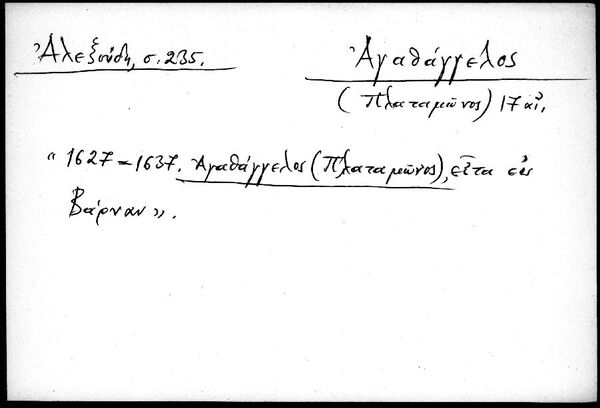 Ἀλεξούδη, σ. 235.
Ἀγαθάγγελος
(Πλαταμῶνος) 17 αἰ.
« 1627 – 1637. Ἀγαθάγγελος (Πλαταμῶνος), εἶτα εἰς
Βάρναν».